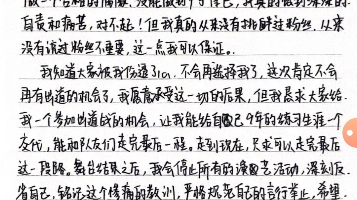 自责和痛苦，对不起！但我真的从来没有挑衅过粉丝，从来
没有说过粉丝不重要，这一点我可以保证。
我知道大家被我伤透了心，不会再选择我了，这次肯定不会
再有出道的机会了，我愿意承受这一切的后果，但我恳求大家给
我一个参加出道战的机会，让我能给自己9年的练习生涯一个
交代，能和队友们走完最后一程。走到现在，只求可以走完最后
这一阶段。舞台结束之后，我会停止所有的演艺活动，深刻反
省自己，铭记这个惨痛的教训，严格规范自己的言行举止，希望